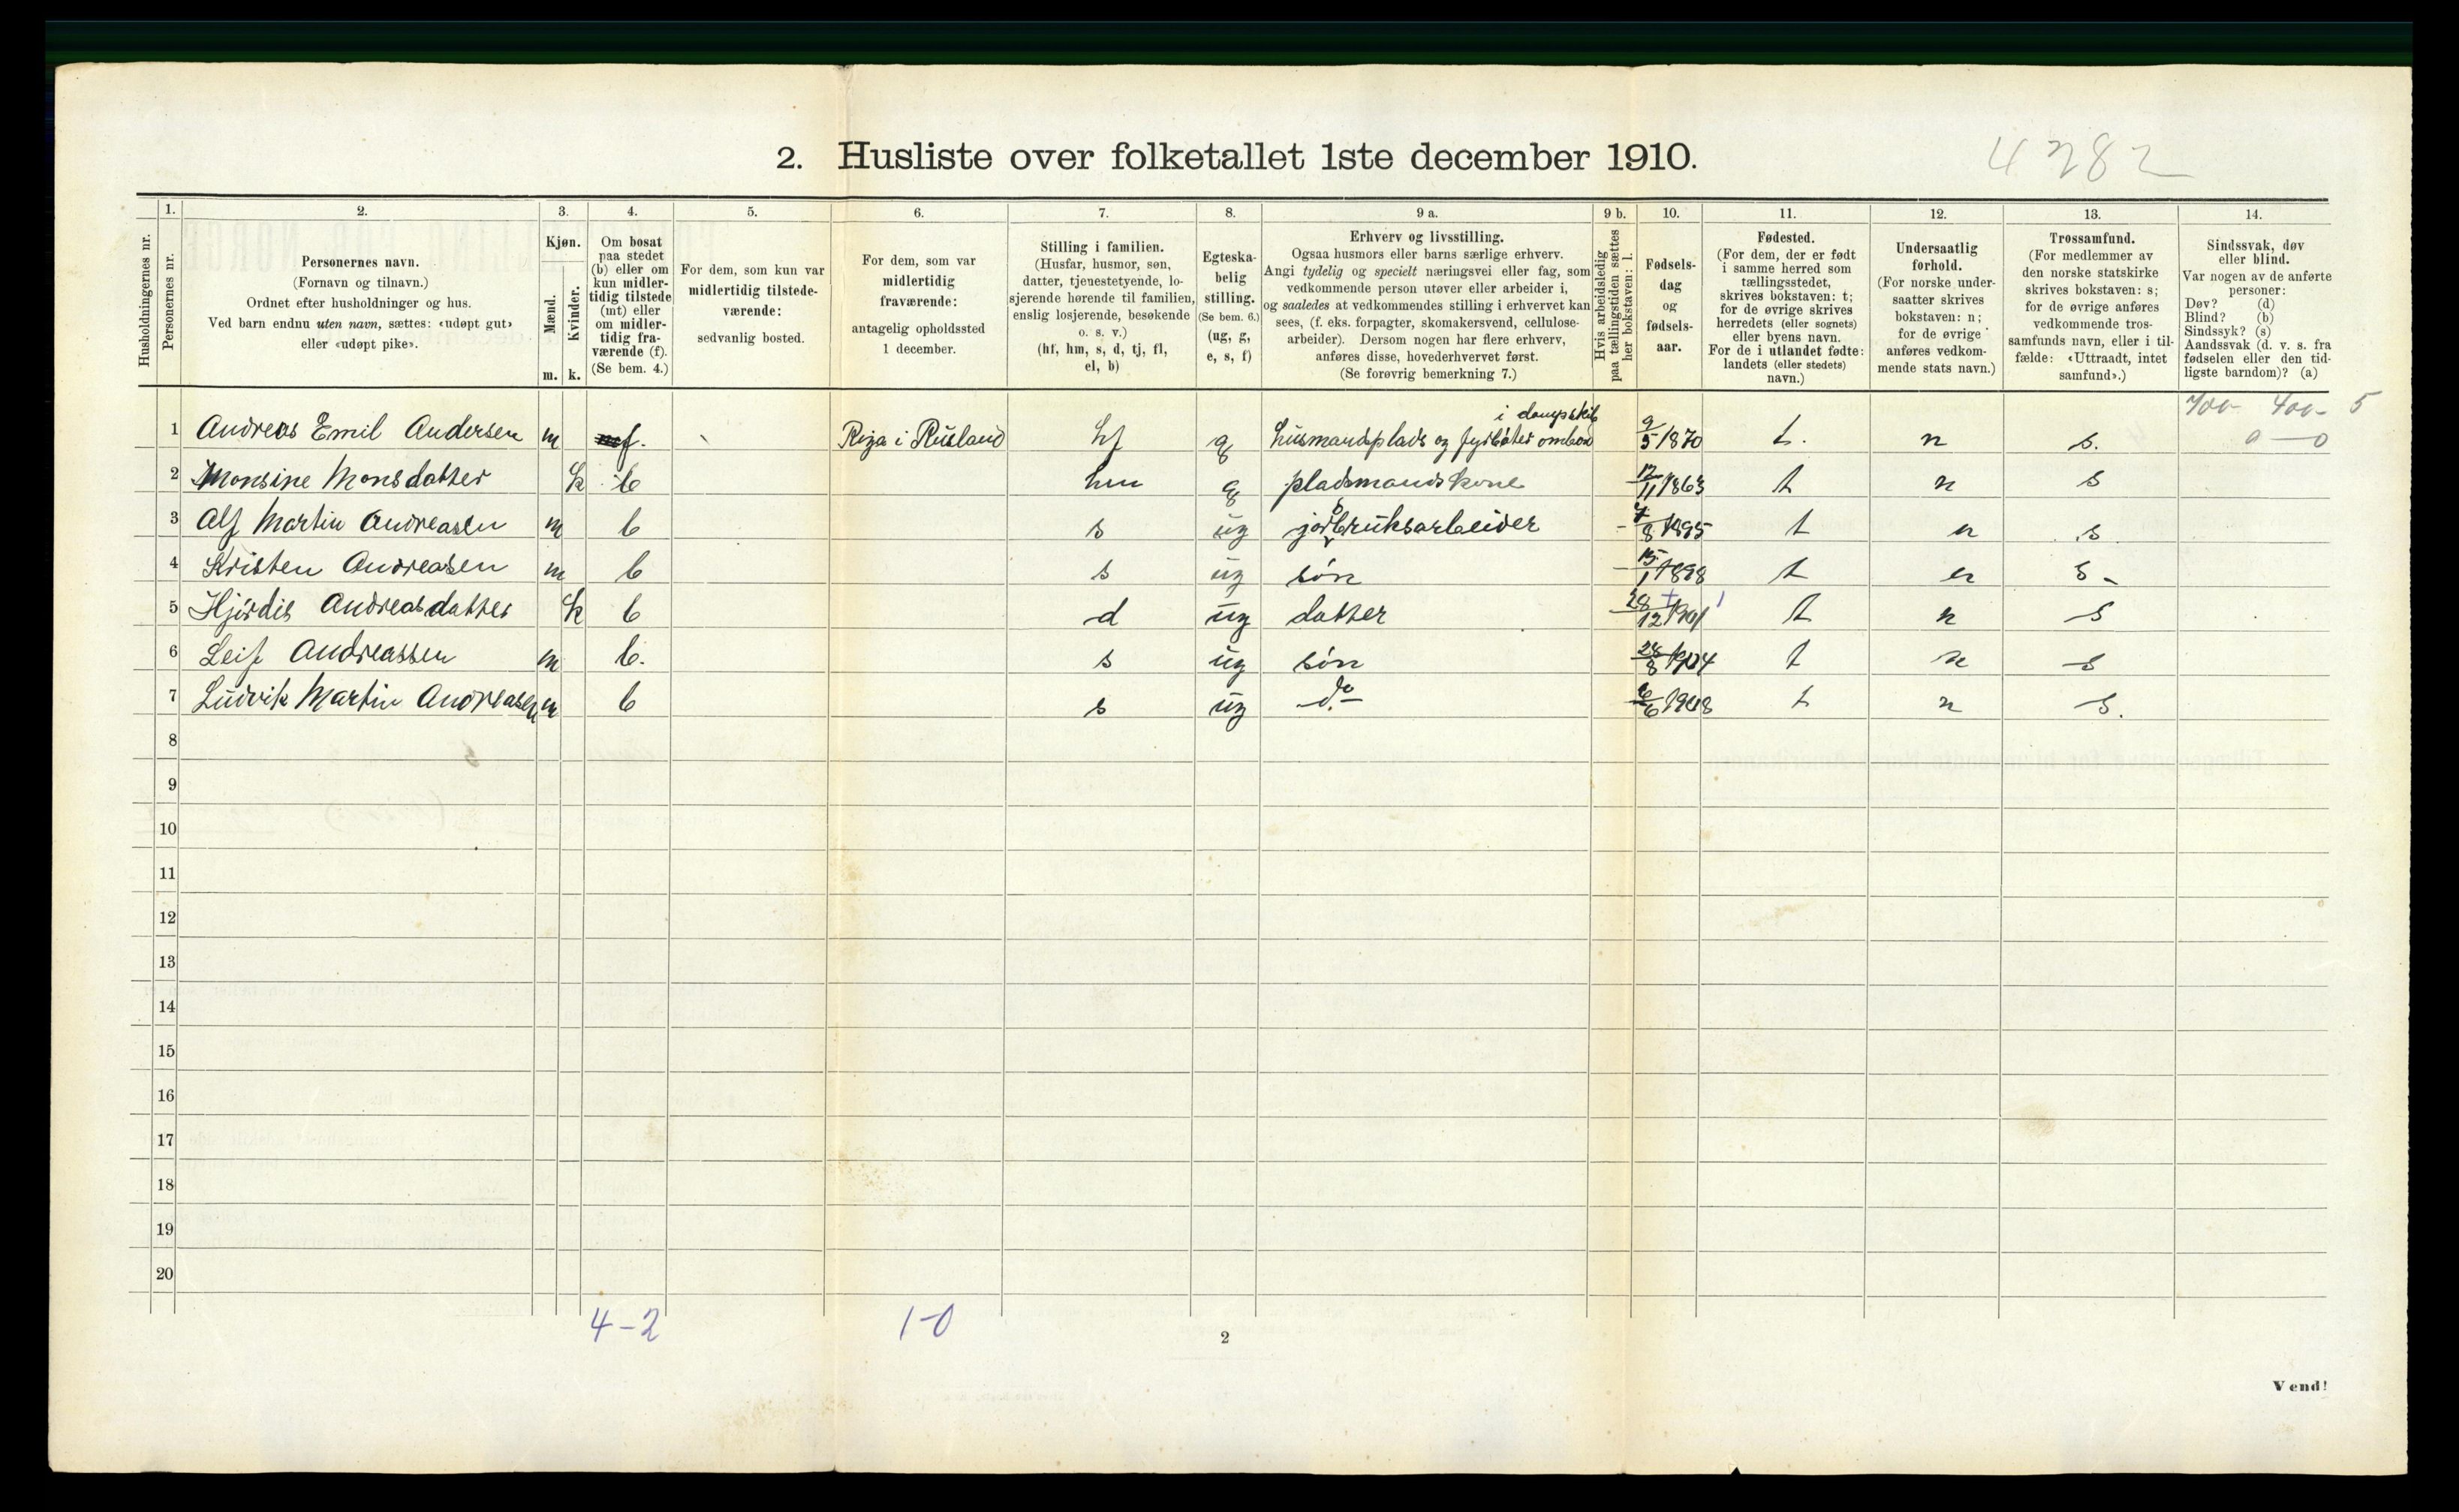 2. Husliste over folketallet 1ste december 1910.
4282
1. 2. 3. 4. 5. 6. 7. 8. 9 a. 9 b. 10. 11. 12. 13. 14.
Husholdningernes nr.
Personernes nr.
Personernes navn.
(Fornavn og tilnavn.)
Ordnet efter husholdninger og hus.
Ved barn endnu uten navn, sættes: «udøpt gut»
eller «udøpt pike».
Kjøn.
Mænd.
Kvinder.
m. k.
Om bosat
paa stedet
(b) eller om
kun midler-
tidig tilstede
(mt) eller
om midler-
tidig fra-
værende (f).
(Se bem. 4.)
For dem, som kun var
midlertidig tilstede-
værende:
sedvanlig bosted.
For dem, som var
midlertidig
fraværende:
antagelig opholdssted
1 december.
Stilling i familien.
(Husfar, husmor, søn,
datter, tjenestetyende, lo-
sjerende hørende til familien,
enslig losjerende, besøkende
o. s. v.)
(hf, hm, s, d, tj, fl,
el, b)
Egteska-
belig
stilling.
(Se bem. 6.)
(ug, g,
e, s, f)
Erhverv og livsstilling.
Ogsaa husmors eller barns særlige erhverv.
Angi tydelig og specielt næringsvei eller fag, som
vedkommende person utøver eller arbeider i,
og saaledes at vedkommendes stilling i erhvervet kan
sees, (f. eks. forpagter, skomakersvend, cellulose-
arbeider). Dersom nogen har flere erhverv,
anføres disse, hovederhvervet først.
(Se forøvrig bemerkning 7.)
Hvis arbeidsledig
paa tællingstiden sættes
her bokstaven: l.
Fødsels-
dag
og
fødsels-
aar.
Fødested.
(For dem, der er født
i samme herred som
tællingsstedet,
skrives bokstaven: t;
for de øvrige skrives
herredets (eller sognets)
eller byens navn.
For de i utlandet fødte:
landets (eller stedets)
navn.)
Undersaatlig
forhold.
(For norske under-
saatter skrives
bokstaven: n;
for de øvrige
anføres vedkom-
mende stats navn.)
Trossamfund.
(For medlemmer av
den norske statskirke
skrives bokstaven: s;
for de øvrige anføres
vedkommende tros-
samfunds navn, eller i til-
fælde: «Uttraadt, intet
samfund».)
Sindssvak, døv
eller blind.
Var nogen av de anførte
personer:
Døv? (d)
Blind? (b)
Sindssyk? (s)
Aandssvak (d. v. s. fra
fødselen eller den tid-
ligste barndom)? (a)
700- 400- 5
0—0
i dampskib
1 Andreas Emil Andersen m f. Riga i Rusland hf g husmandsplads og fyrbøter ombord 9/5 1870 t. n s.
2 Monsine Monsdatter k b hm g pladsmandskone 12/11 1863 t n s
3 Alf Martin Andreasen m b s ug jordbruksarbeider 7/8 1895 t n s
4 Kristen Andreasen m b s ug søn 15/1 1898 t n s -
5 Hjørdis Andreasdatter k b d ug datter 28/12 1901 t n s
6 Leif Andreassen m b. s ug søn 28/8 1904 t n s
7 Ludvik Martin Andreasen m b s ug do 6/6 1908 t n s.
8
9
10
11
12
13
14
15
16
17
18
19
20
4-2 1-0
2
Vend!